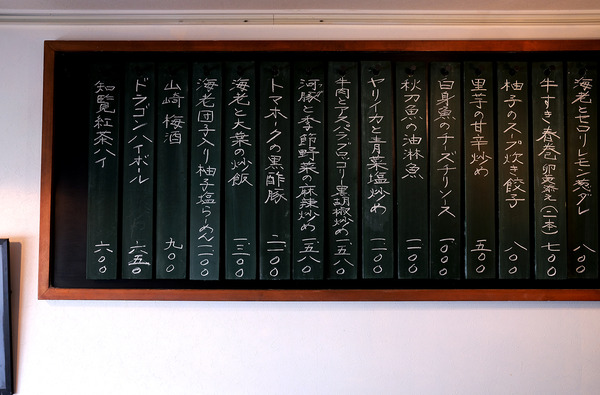 海老とセロリレモン葱ダレ 八〇〇
牛すき春巻 卵黄添え(二本) 七〇〇
柚子のスープ炊き餃子 八〇〇
里芋の甘辛炒め 五〇〇
白身魚のチーズチリソース 一〇〇〇
秋刀魚の油淋魚 一一〇〇
ヤリイカと青菜塩炒め 一二〇〇
牛肉とアスパラ、ブロッコリー黒胡椒炒め 一五八〇
河豚と季節野菜の麻辣炒め 一五八〇
トマホークの黒酢豚 二一〇〇
海老と大葉の炒飯 一三〇〇
海老団子入り柚子塩らーめん 一二〇〇
山崎梅酒 九〇〇
ドラゴンハイボール 六五〇
知覧紅茶ハイ 六〇〇